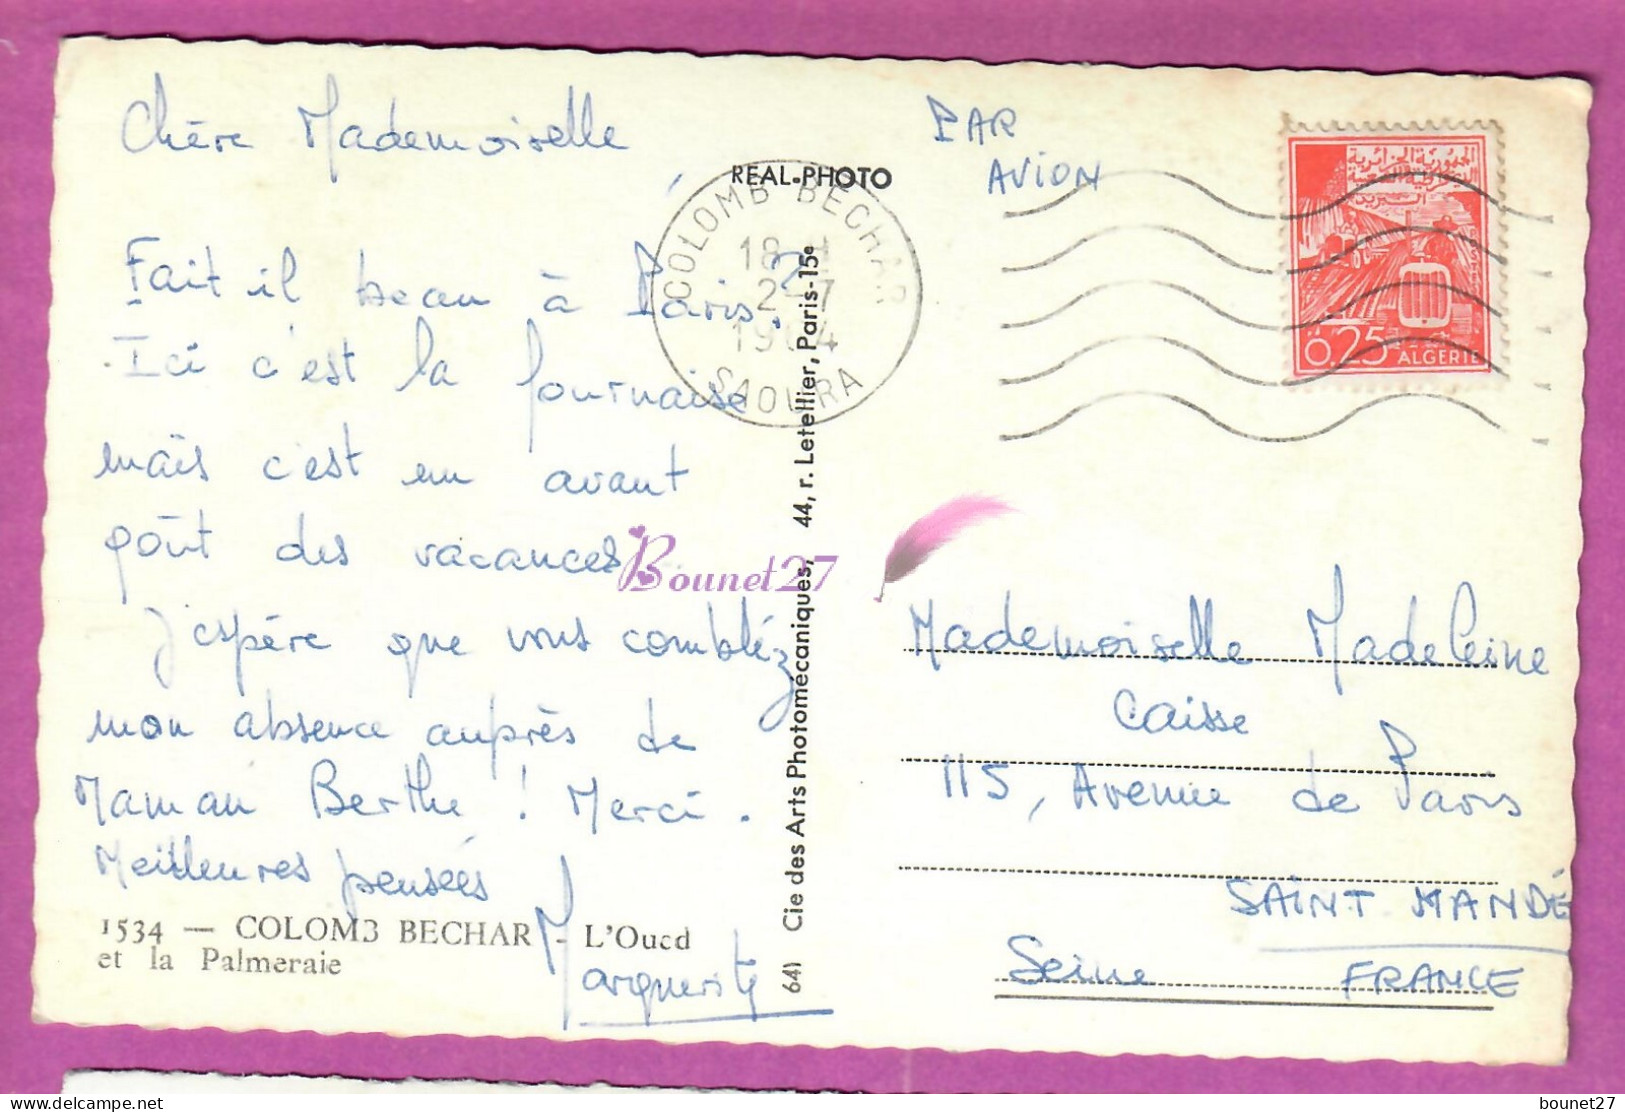 Chère Mademoiselle
Fait il beau à Paris ?
Ici c'est la fournaise
mais c'est un avant
goût des vacances.
J'espère que vous comblez
mon absence auprès de
Maman Berthe ! Merci.
Meilleures pensées
Marguerite
1534 — COLOMB BECHAR - L'Oued
et la Palmeraie
REAL-PHOTO
641 Cie des Arts Photomécaniques, 44, r. Letellier, Paris-15e
COLOMB BECHAR
2-7
SAOURA
PAR
AVION
الجمهورية الجزائرية
الديمقراطية الشعبية
البريد
POSTES
0,25 ALGERIE
Mademoiselle Madeleine
Caisse
115, Avenue de Paris
SAINT MANDÉ
Seine FRANCE
Bounet27
bounet27